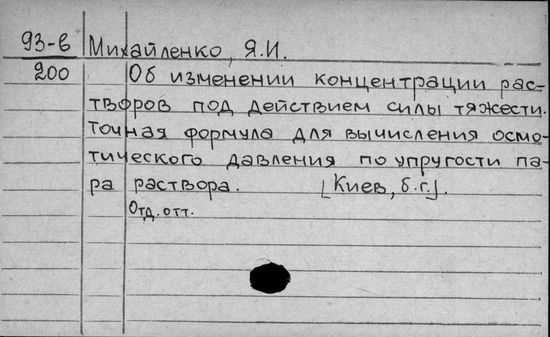 93-в Михайленко, Я.И.
200 Об изменении концентрации рас-
творов под действием силы тяжести.
Точная формула для вычисления осмо-
тического давления по упругости па-
ра раствора. [Киев, б.г.].
Отд. отт.